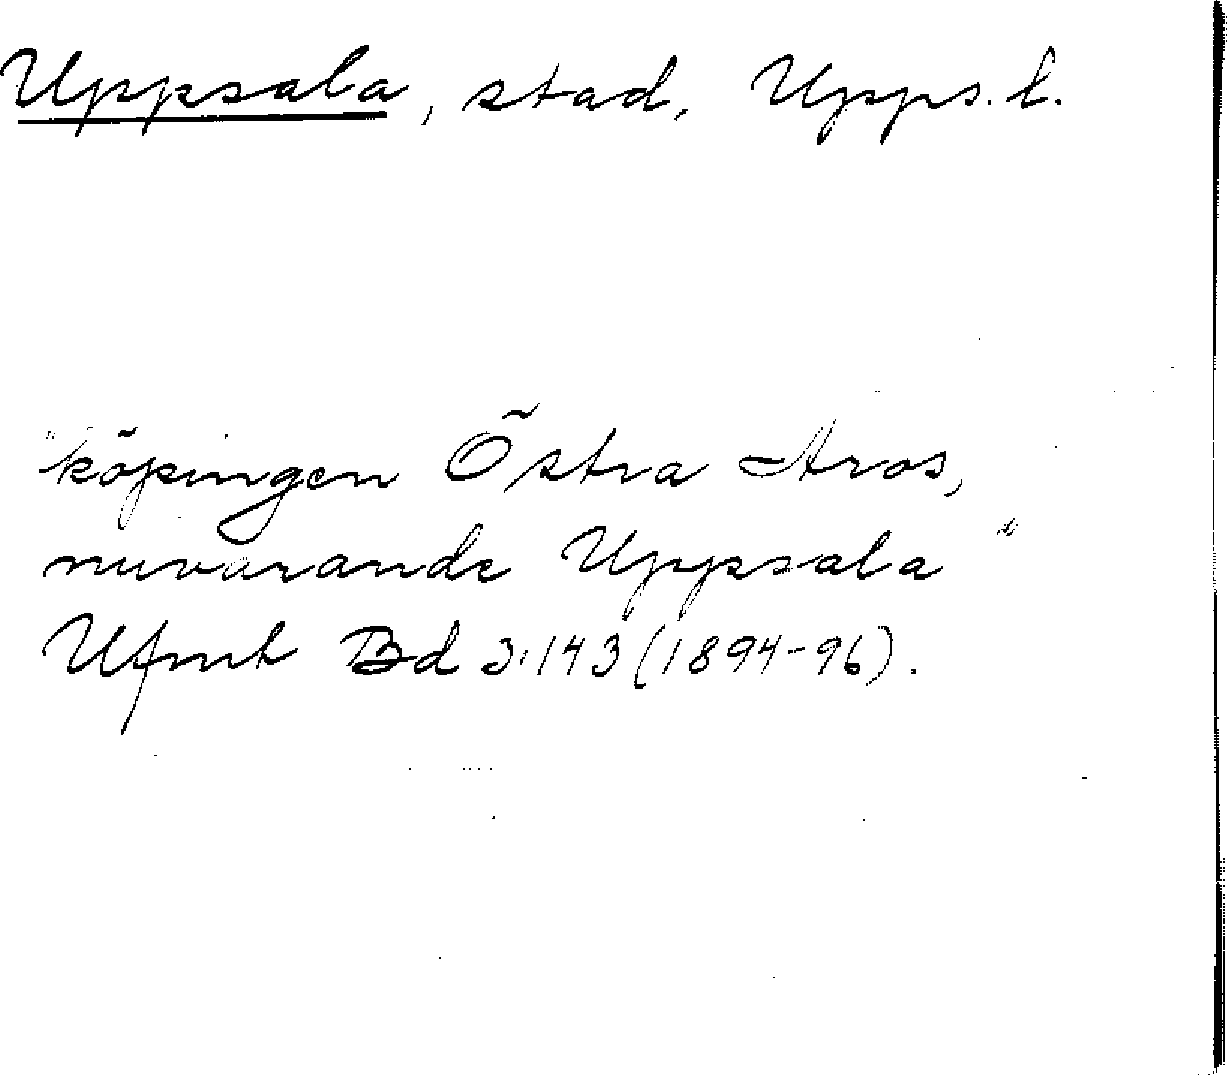 Uppsala, stad, Upps. l.
"köpingen Östra Aros,
nuvarande Uppsala"
Ufmt Bd 3:143 (1894-96).